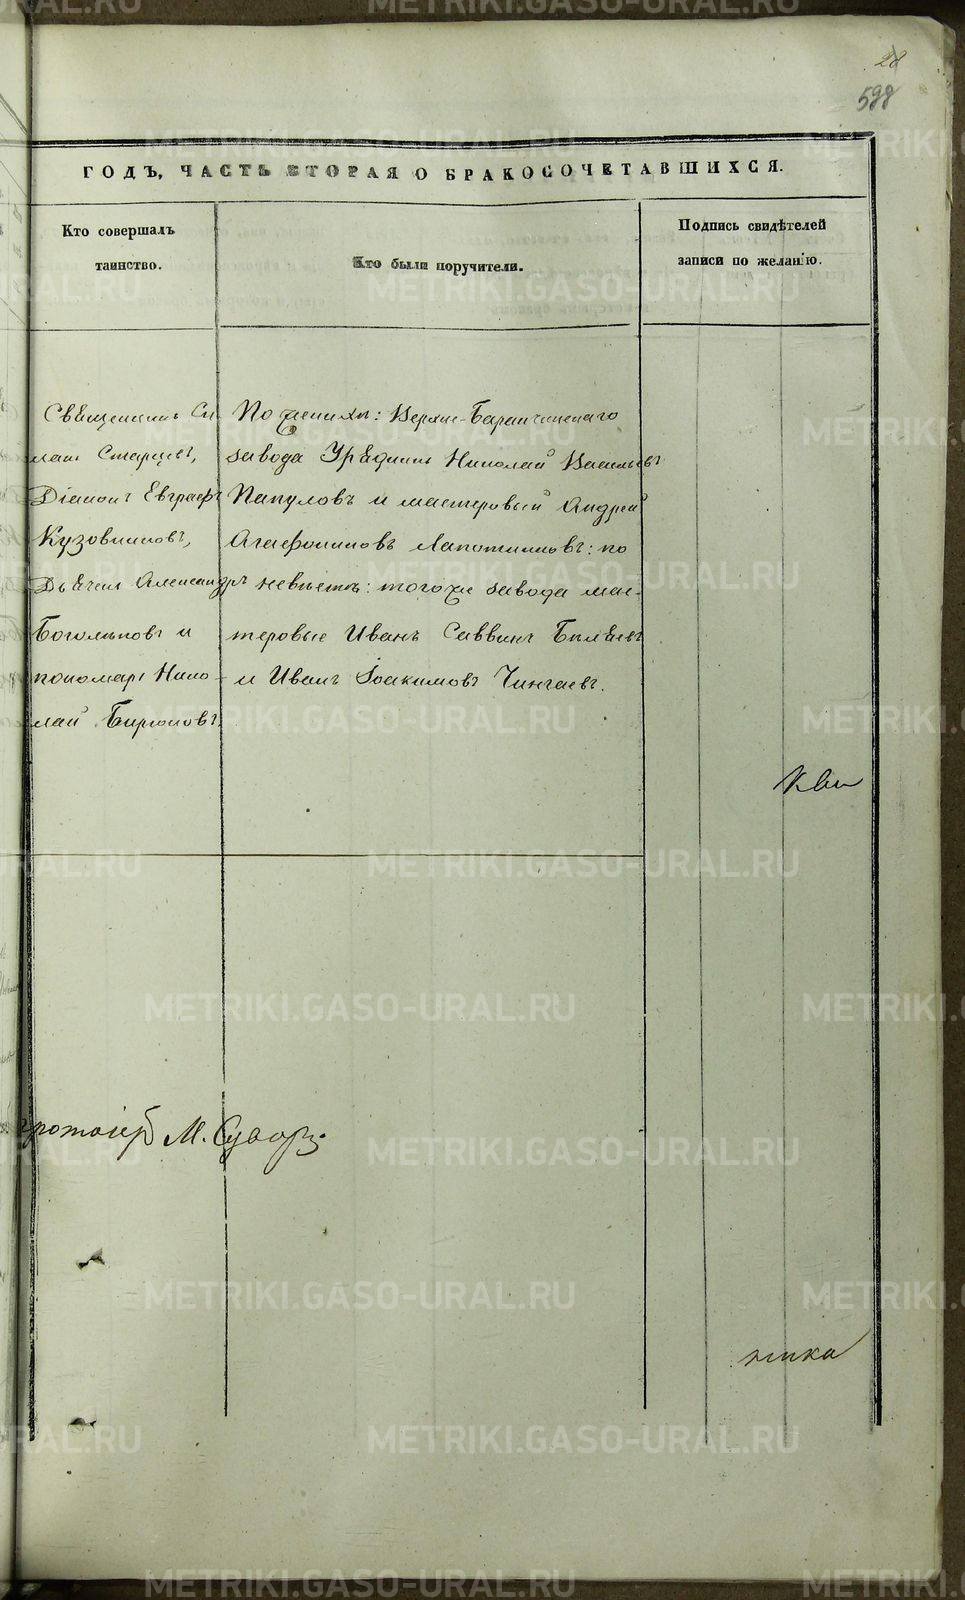 28
598
ГОДЪ, ЧАСТЬ ВТОРАЯ О БРАКОСОЧЕТАВШИХСЯ.
Кто совершалъ
таинство.
Кто были поручители.
Подпись свидѣтелей
записи по желанію.
Священникъ Си-
лаш Старцевъ,
Діаконъ Евграфъ
Кузовниковъ,
Дьячекъ Александръ
Боголѣповъ и
пономарь Нико-
лай Бирюковъ.
По женихѣ: Верхне-Баранчинскаго
завода Урядникъ Николай Васильевъ
Папуловъ и мастеровый Андрей
Агафониковъ Лапотниковъ: по
невѣстѣ: тогоже завода мас-
теровые Иванъ Саввинъ Бѣляевъ
и Иванъ Іоакимовъ Чингаевъ.
протоіерей М.
METRIKI.GASO-URAL.RU